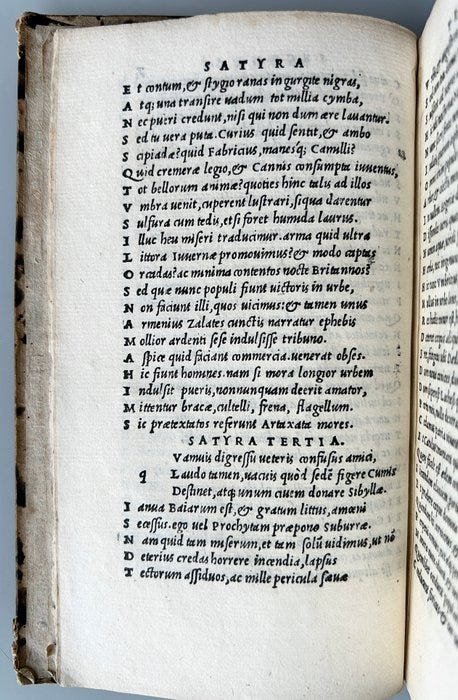 SATYRA
E t contum, & stygio ranas in gurgite nigras,
A tq; una transire uadum tot millia cymba,
N ec pueri credunt, nisi qui non dum ære lauantur.
S ed tu uera puta. Curius quid sentit, & ambo
S cipiadæ? quid Fabricius, manesq; Camilli?
Q uid cremeræ legio, & Cannis consumpta iuuentus,
T ot bellorum animæ? quoties hinc talis ad illos
V mbra uenit, cuperent lustrari, si qua darentur
S ulfura cum tedis, et si foret humida laurus.
I lluc heu miseri traducimur. arma quid ultra
L ittora Iuuernæ promouimus? & modo captas
O rcadas? ac minima contentos nocte Britannos?
S ed quæ nunc populi fiunt uictoris in urbe,
N on faciunt illi, quos uicimus: & tamen unus
A rmenius Zalates cunctis narratur ephebis
M ollior ardenti sese indulsisse tribuno.
A spice quid faciant commercia. uenerat obses.
H ic fiunt homines. nam si mora longior urbem
I ndulsit pueris, non nunquam deerit amator,
M ittentur bracæ, cultelli, frena, flagellum.
S ic prætextatos referunt Artaxata mores.
SATYRA TERTIA.
q Vamuis digressu ueteris confusus amici,
Laudo tamen, uacuis quòd sedē figere Cumis
Destinet, atq; unum ciuem donare Sibyllæ.
I anua Baiarum est, & gratum littus, amœni
S ecessus. ego uel Prochytam præpono Suburræ.
N am quid tam miserum, et tam solū uidimus, ut nō
D eterius credas horrere incendia, lapsus
T ectorum assiduos, ac mille pericula sæuæ